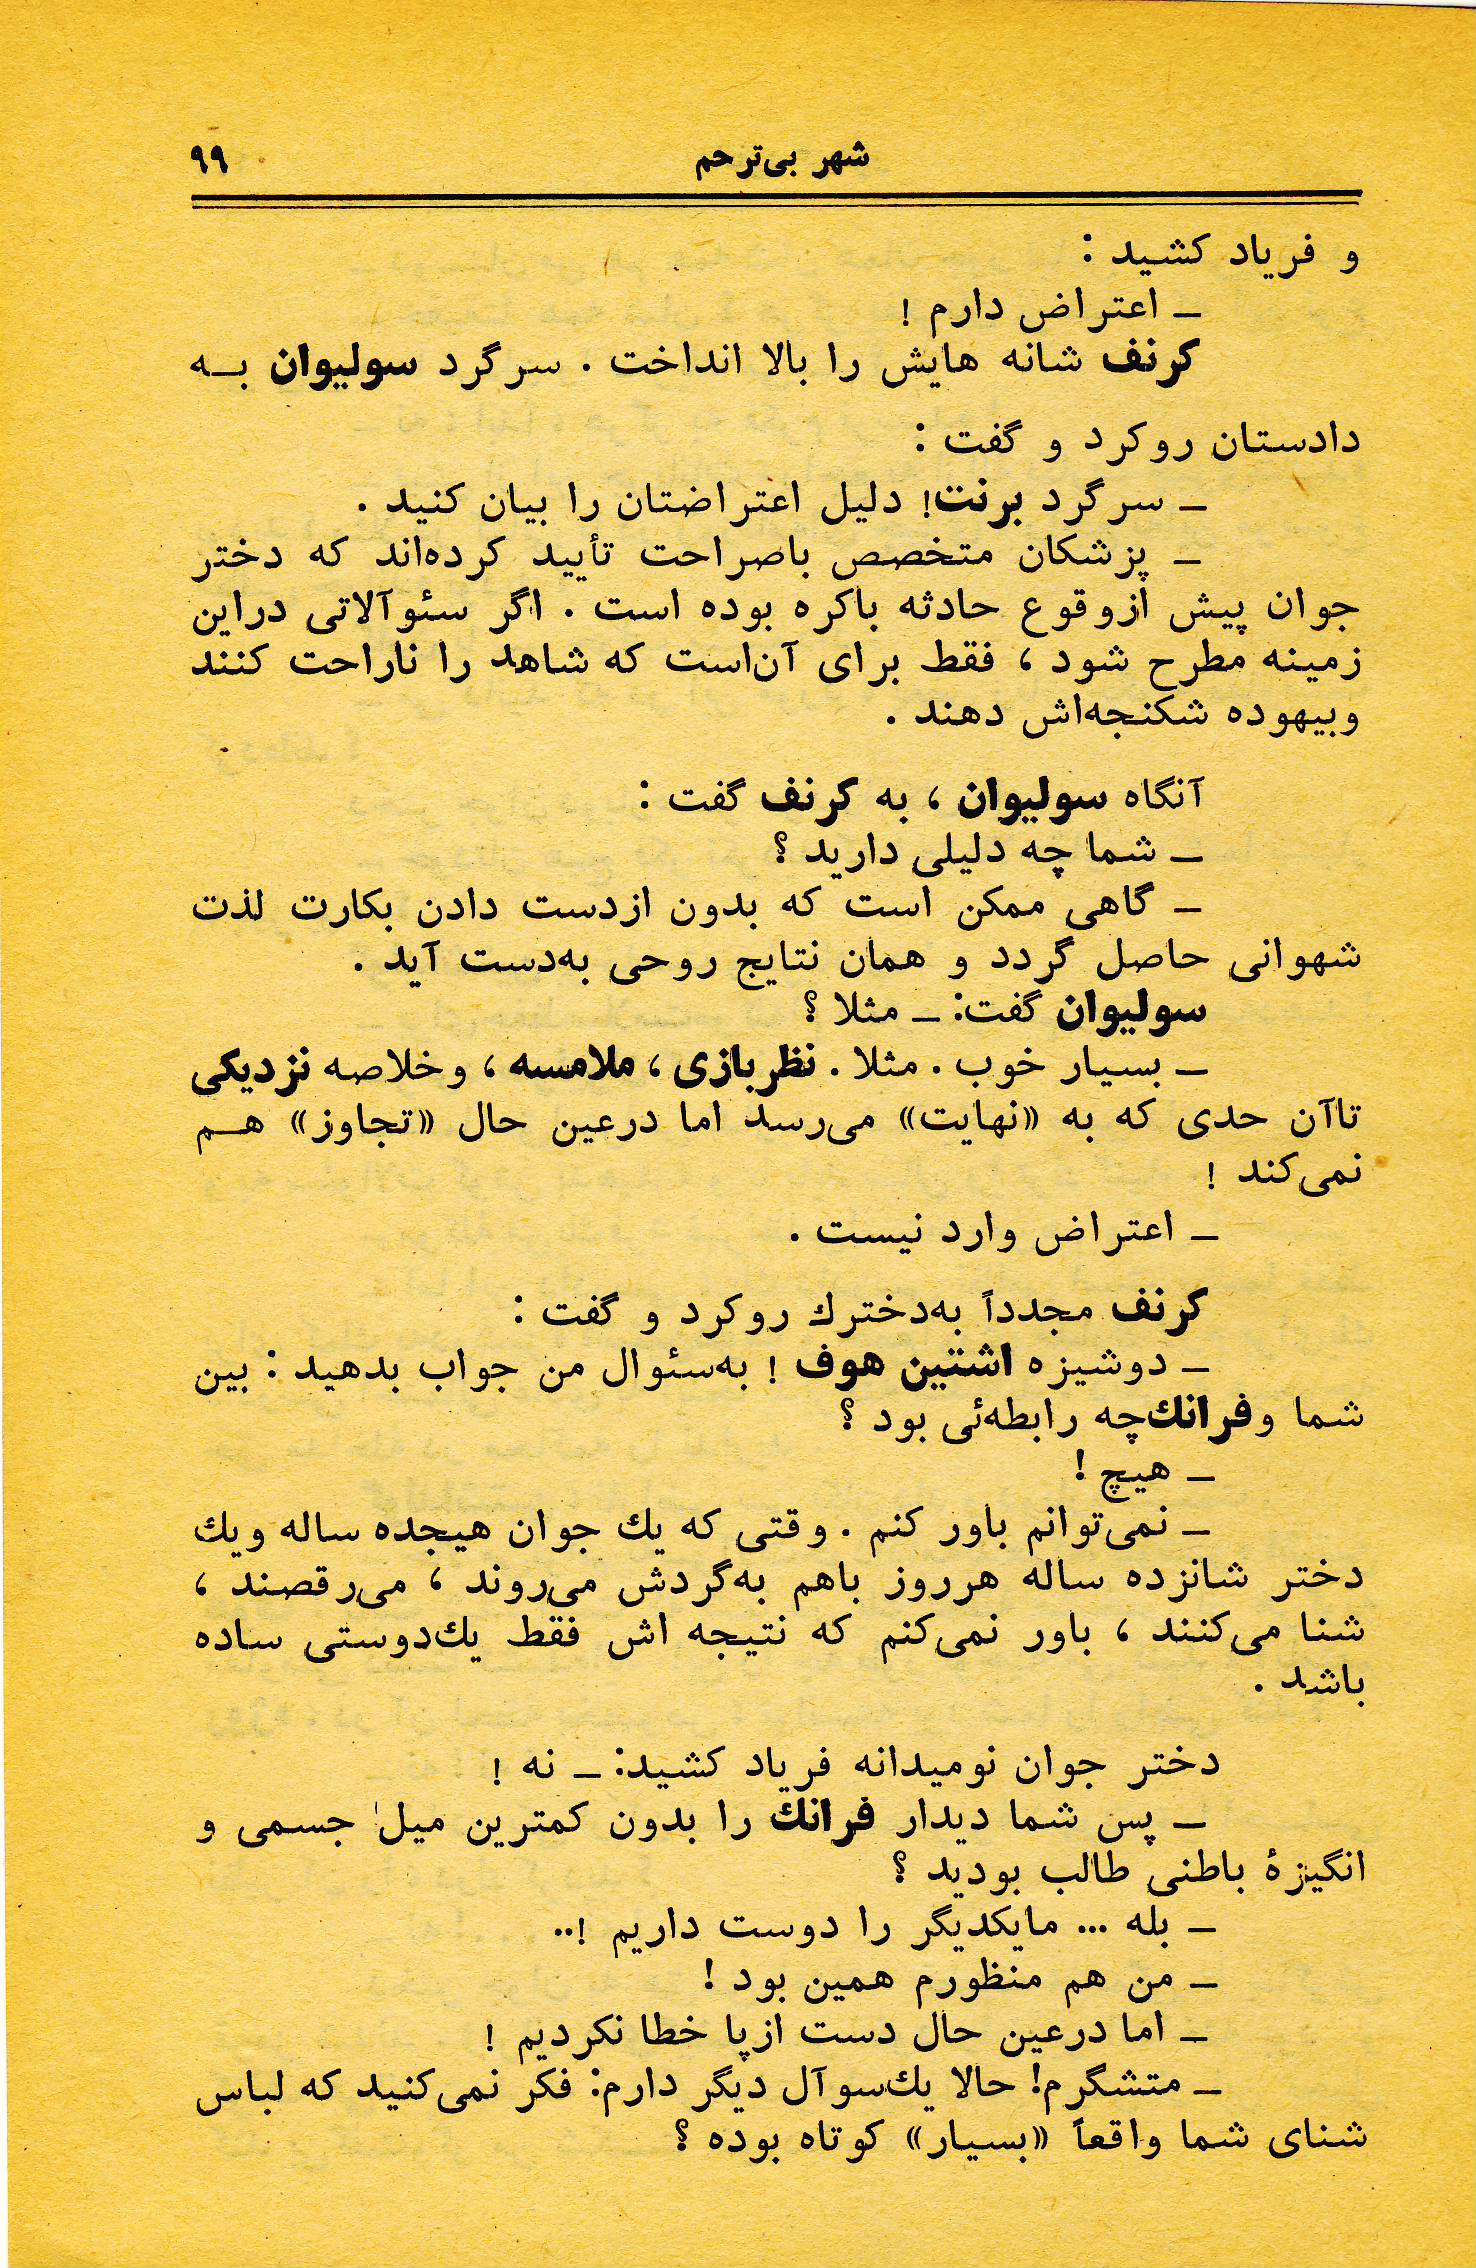 شهر بی‌ترحم ۹۹
و فریاد کشید :
ــ اعتراض دارم !
کرنف شانه هایش را بالا انداخت . سرگرد سولیوان بــه
دادستان روکرد و گفت :
ــ سرگرد برنت! دلیل اعتراضتان را بیان کنید .
ــ پزشکان متخصص باصراحت تأیید کرده‌اند که دختر
جوان پیش ازوقوع حادثه باکره بوده است . اگر سئوآلاتی دراین
زمینه مطرح شود ، فقط برای آن‌است که شاهد را ناراحت کنند
وبیهوده شکنجه‌اش دهند .
آنگاه سولیوان ، به کرنف گفت :
ــ شما چه دلیلی دارید ؟
ــ گاهی ممکن است که بدون ازدست دادن بکارت لذت
شهوانی حاصل گردد و همان نتایج روحی به‌دست آید .
سولیوان گفت: ــ مثلا ؟
ــ بسیار خوب . مثلا . نظربازی ، ملامسه ، وخلاصه نزدیکی
تاآن حدی که به «نهایت» می‌رسد اما درعین حال «تجاوز» هــم
نمی‌کند !
ــ اعتراض وارد نیست .
کرنف مجدداً به‌دخترك روکرد و گفت :
ــ دوشیزه اشتین هوف ! به‌سئوال من جواب بدهید : بین
شما وفرانك‌چه رابطه‌ئی بود ؟
ــ هیچ !
ــ نمی‌توانم باور کنم . وقتی که یك جوان هیجده ساله ویك
دختر شانزده ساله هرروز باهم به‌گردش می‌روند ، می‌رقصند ،
شنا می‌کنند ، باور نمی‌کنم که نتیجه اش فقط یك‌دوستی ساده
باشد .
دختر جوان نومیدانه فریاد کشید: ــ نه !
ــ پس شما دیدار فرانك را بدون کمترین میل جسمی و
انگیزهٔ باطنی طالب بودید ؟
ــ بله ... مایکدیگر را دوست داریم !..
ــ من هم منظورم همین بود !
ــ اما درعین حال دست ازپا خطا نکردیم !
ــ متشگرم! حالا یك‌سوآل دیگر دارم: فکر نمی‌کنید که لباس
شنای شما واقعاً «بسیار» کوتاه بوده ؟